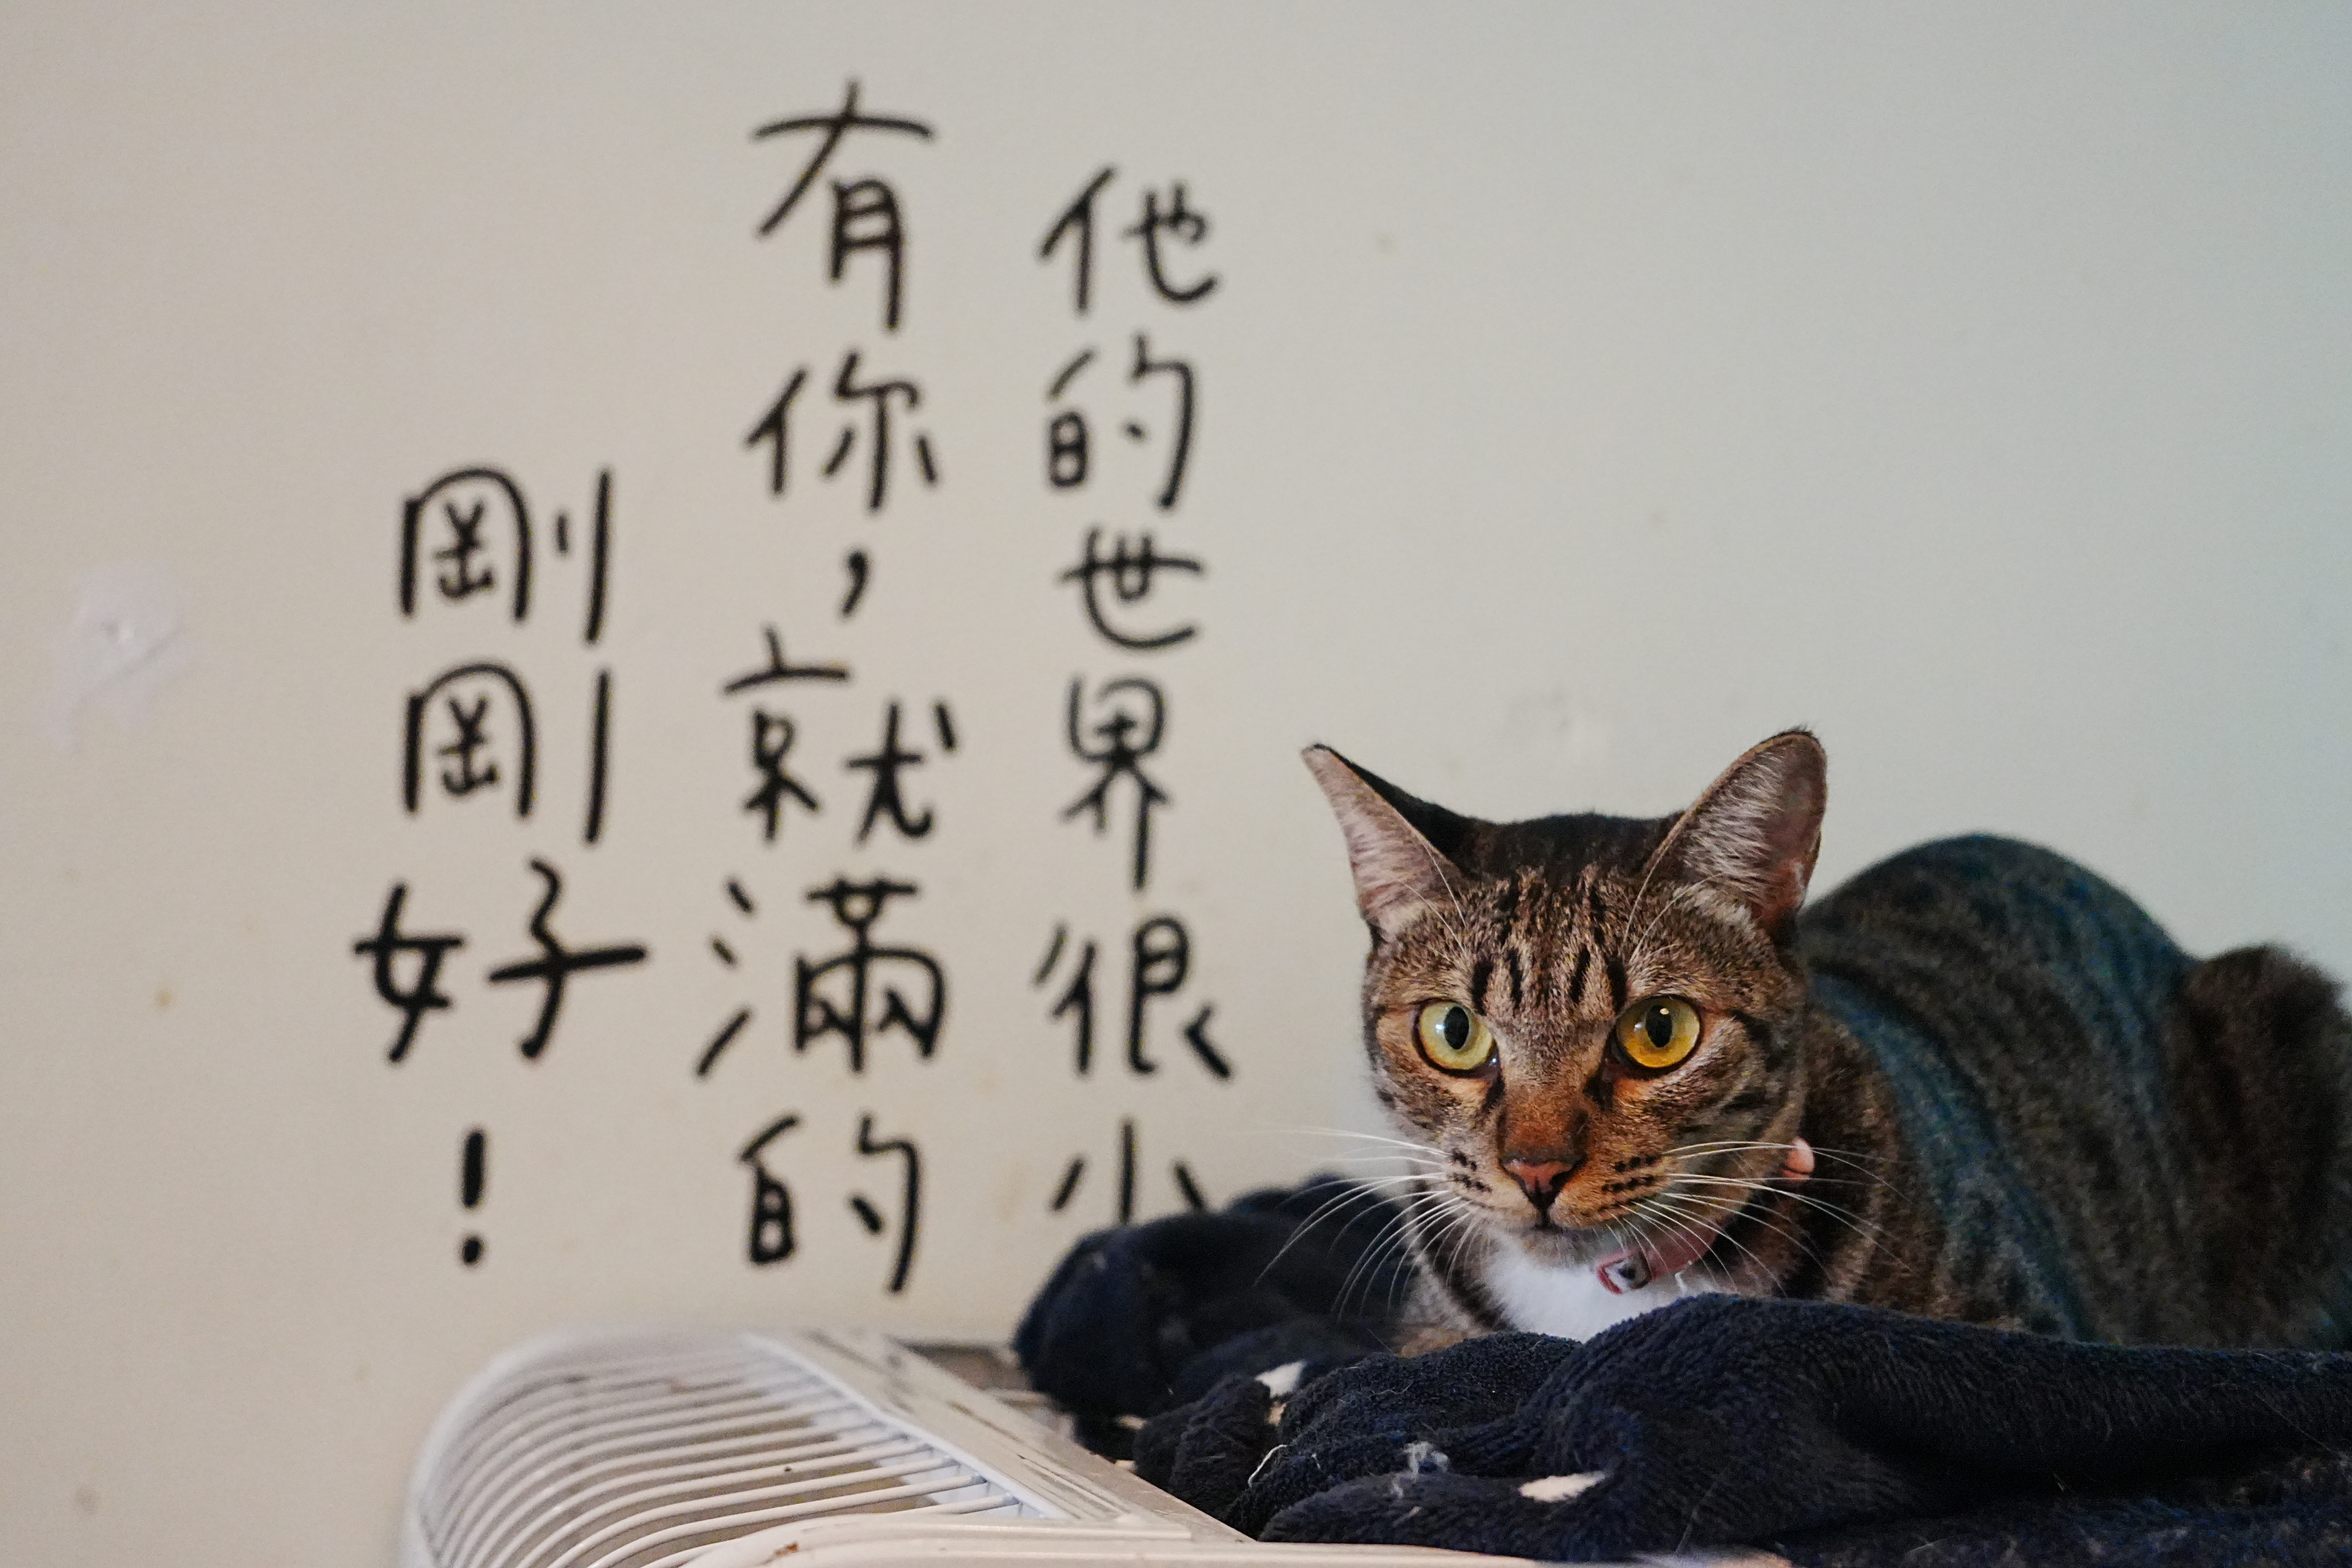 他的世界很小
有你，就滿的
剛剛好！